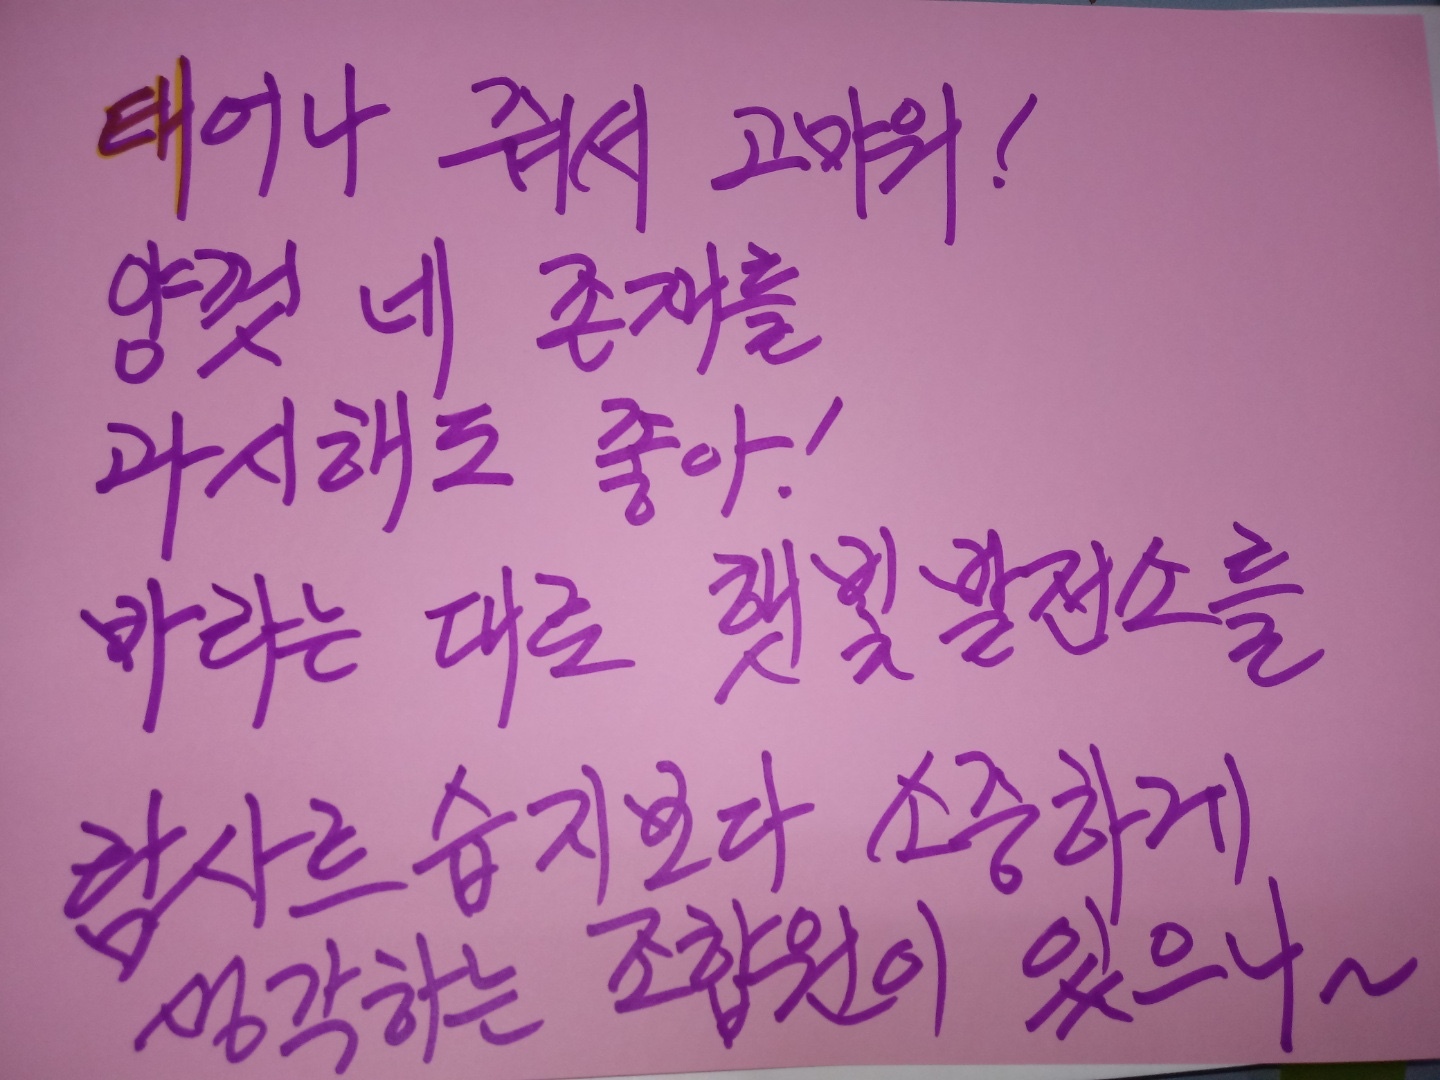 태어나 줘서 고마워!
양껏 네 존재를
과시해도 좋아!
바라는 대로 햇빛발전소를
람사르습지보다 소중하게
생각하는 조합원이 있으니~